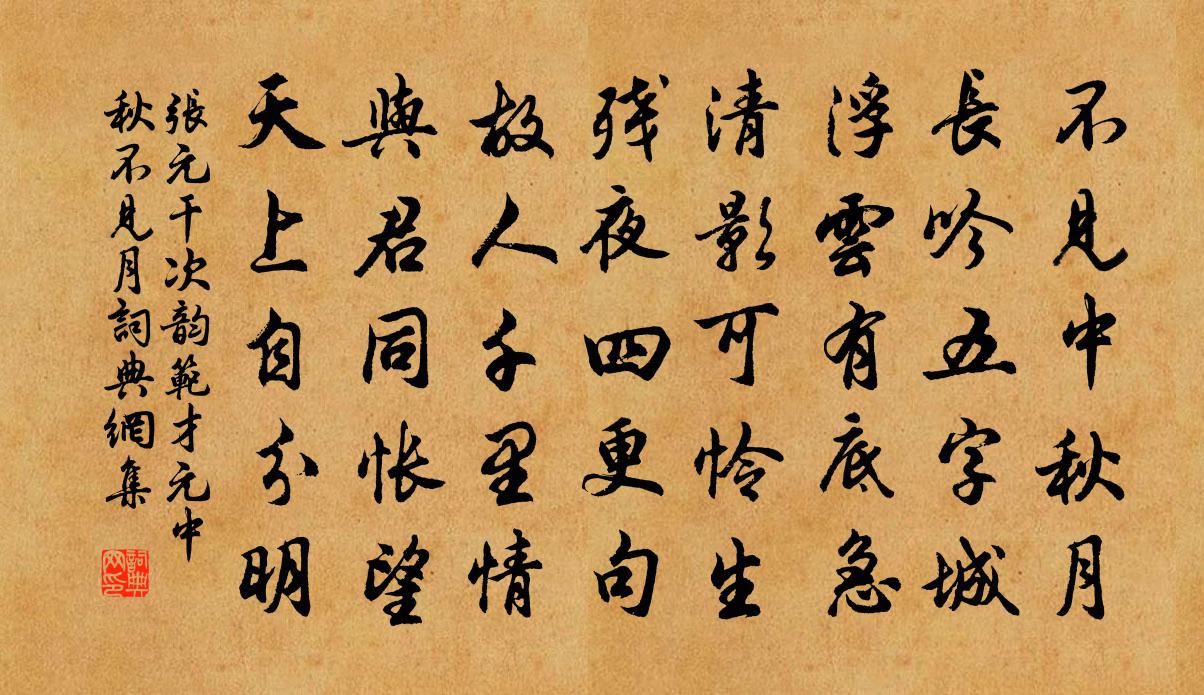 不见中秋月
長吟五字城
浮雲有底急
清影可怜生
残夜四更句
故人千里情
與君同怅望
天上自分明
張元干次韵範才元中
秋不见月詞典網集
詞典
网印